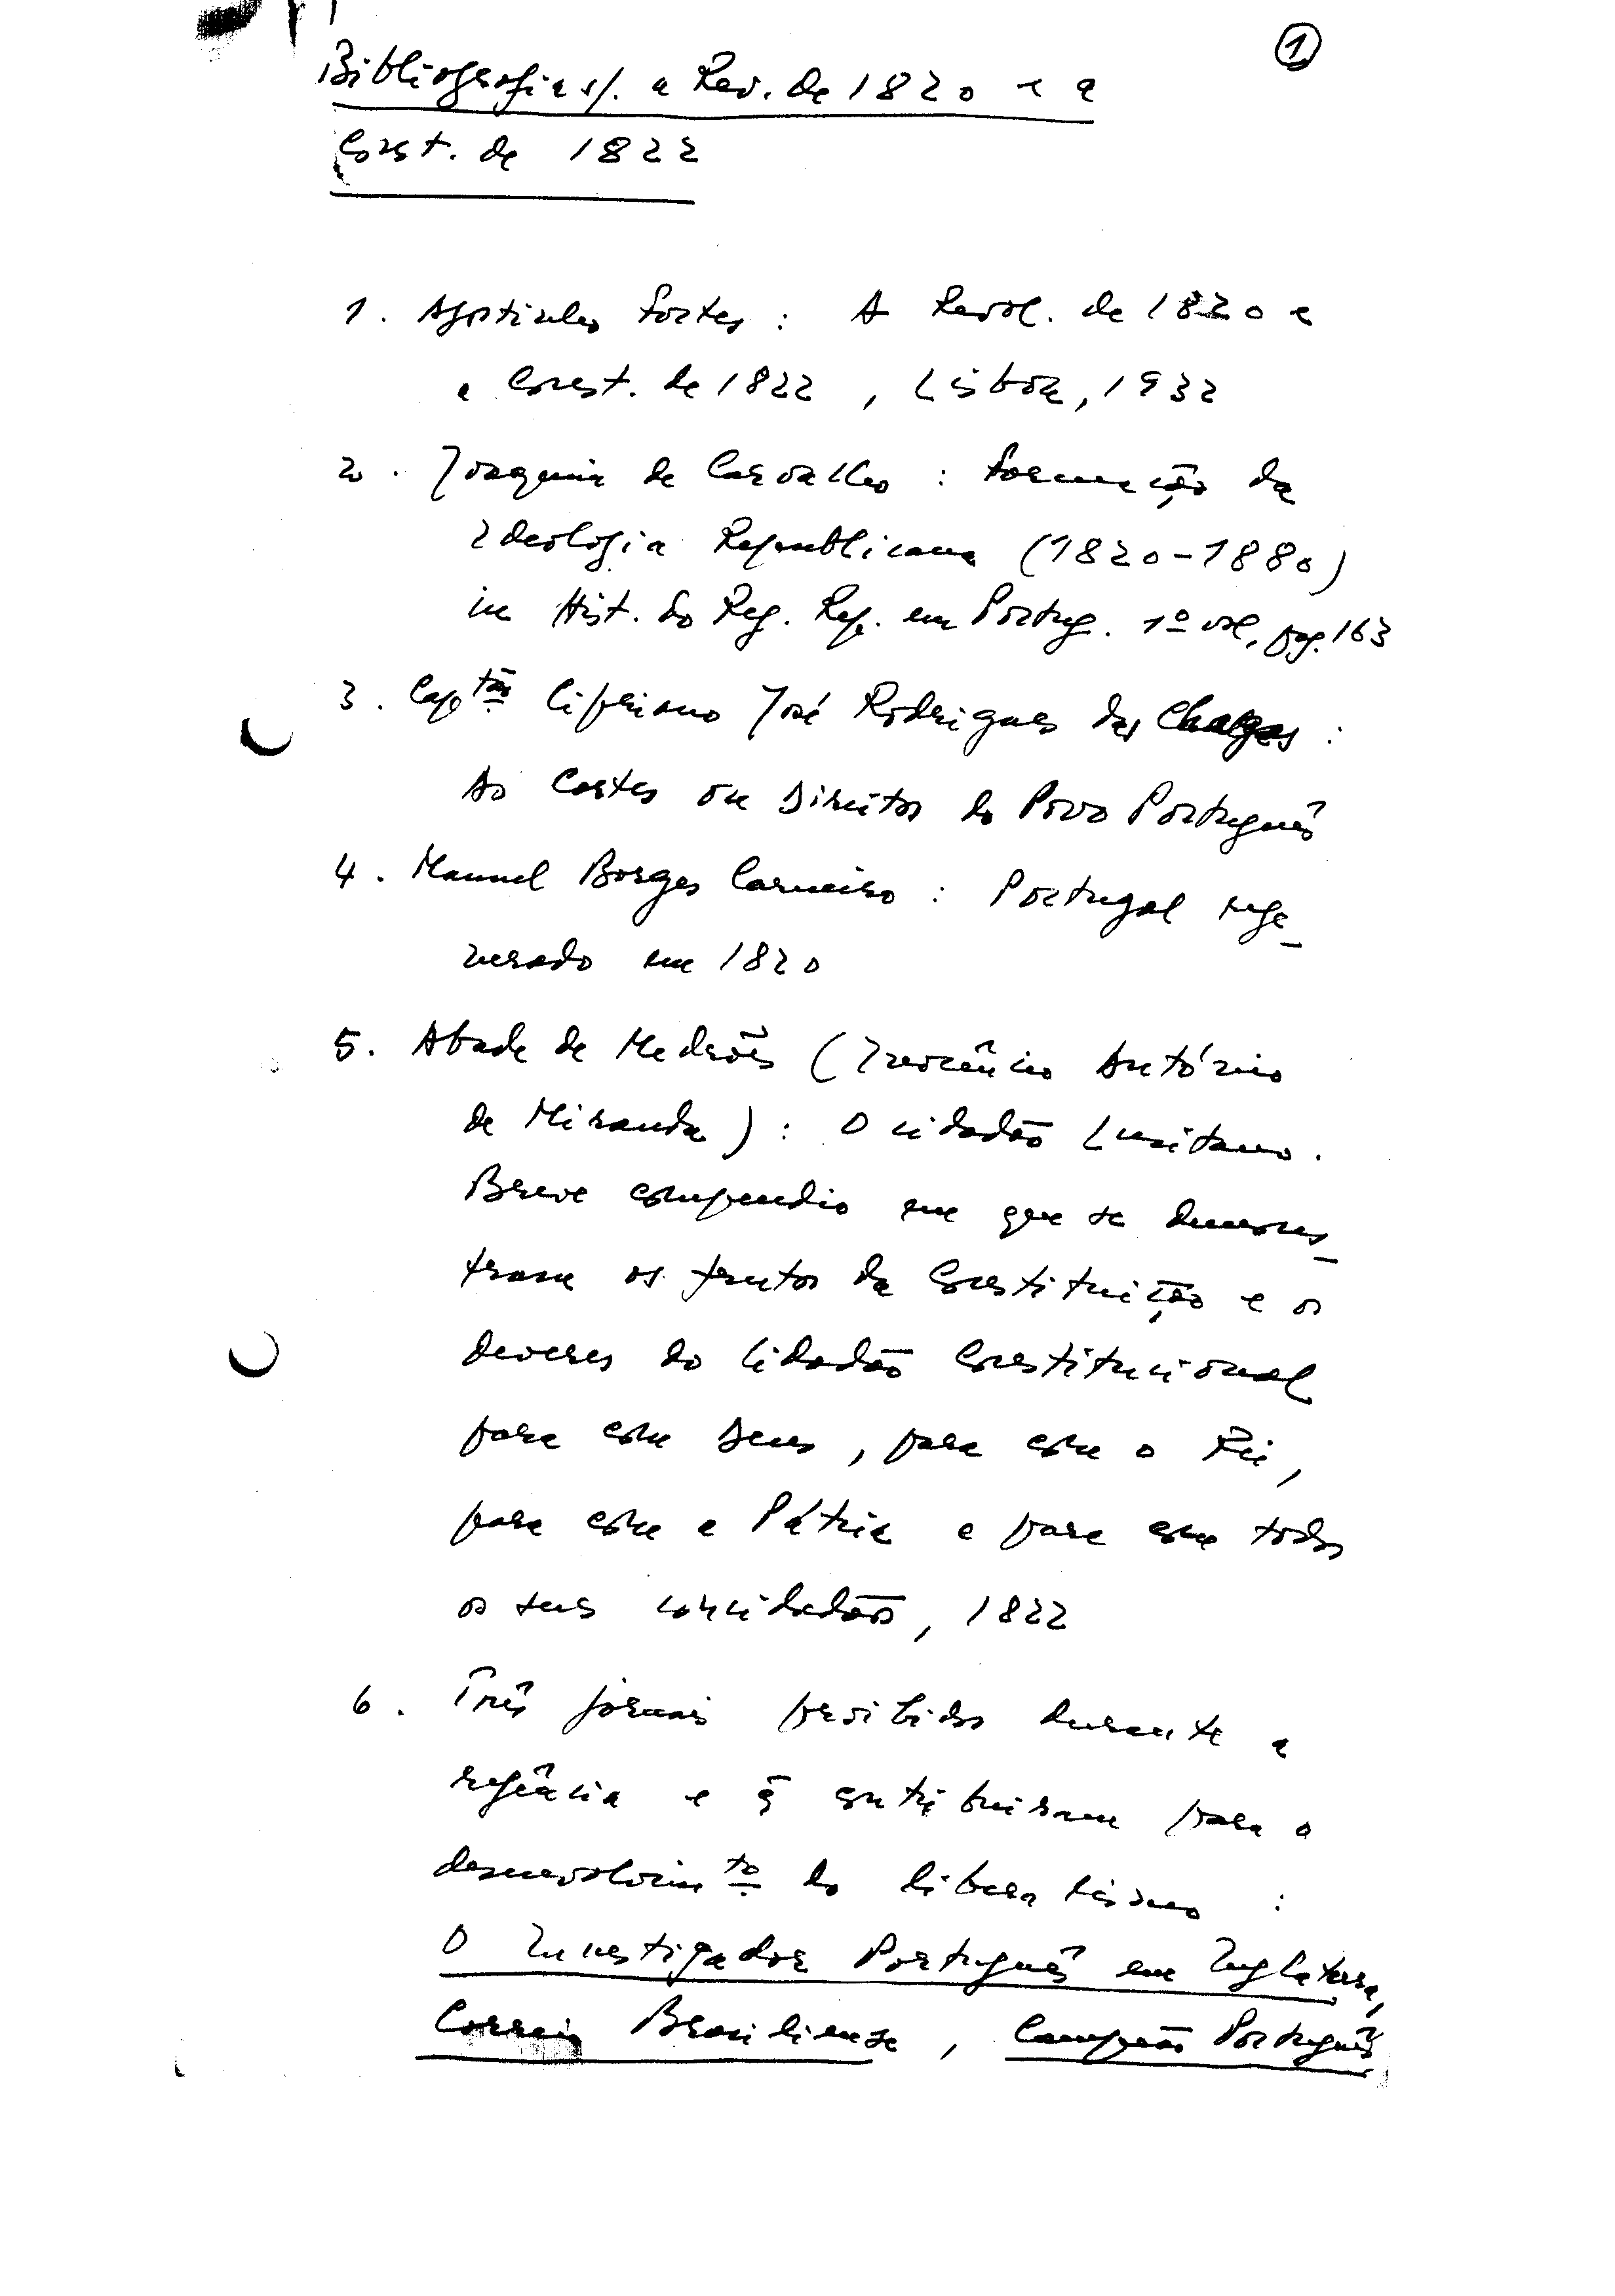 1
Bibliografia s/. a Rev. de 1820 e a
Const. de 1822
1. Agostinho Fortes : A Revol. de 1820 e
a Const. de 1822 , Lisboa, 1932
2. Joaquim de Carvalho : Formação da
Ideologia Republicana (1820-1880)
in Hist. do Reg. Rep. em Portug. 1º vol, pag. 163
3. Captão Cipriano José Rodrigues das Chagas :
As Cortes ou Direitos do Povo Português
4. Manuel Borges Carneiro : Portugal rege-
nerado em 1820
5. Abade de Medrões (Inocêncio António
de Miranda) : O cidadão Lusitano.
Breve compendio em que se demons-
tram os frutos da Constituição e os
deveres do Cidadão Constitucional
para com Deus, para com o Rei,
para com a Pátria e para com todos
os seus concidadãos, 1822
6. Três jornais proibidos durante a
regência e q̃ contribuiram para o
desenvolvimto do liberalismo :
O Investigador Português em Inglaterra,
Correio Brasiliense, Campeão Português